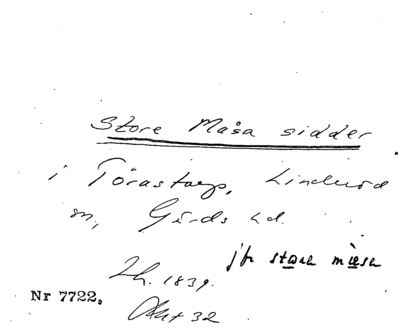 Store Måsa sidder
i Törastorp, Linderöd
sn, Gärds hd.
jfr stora måsa
Lh. 1839.
Nr 7722.
Okt 32